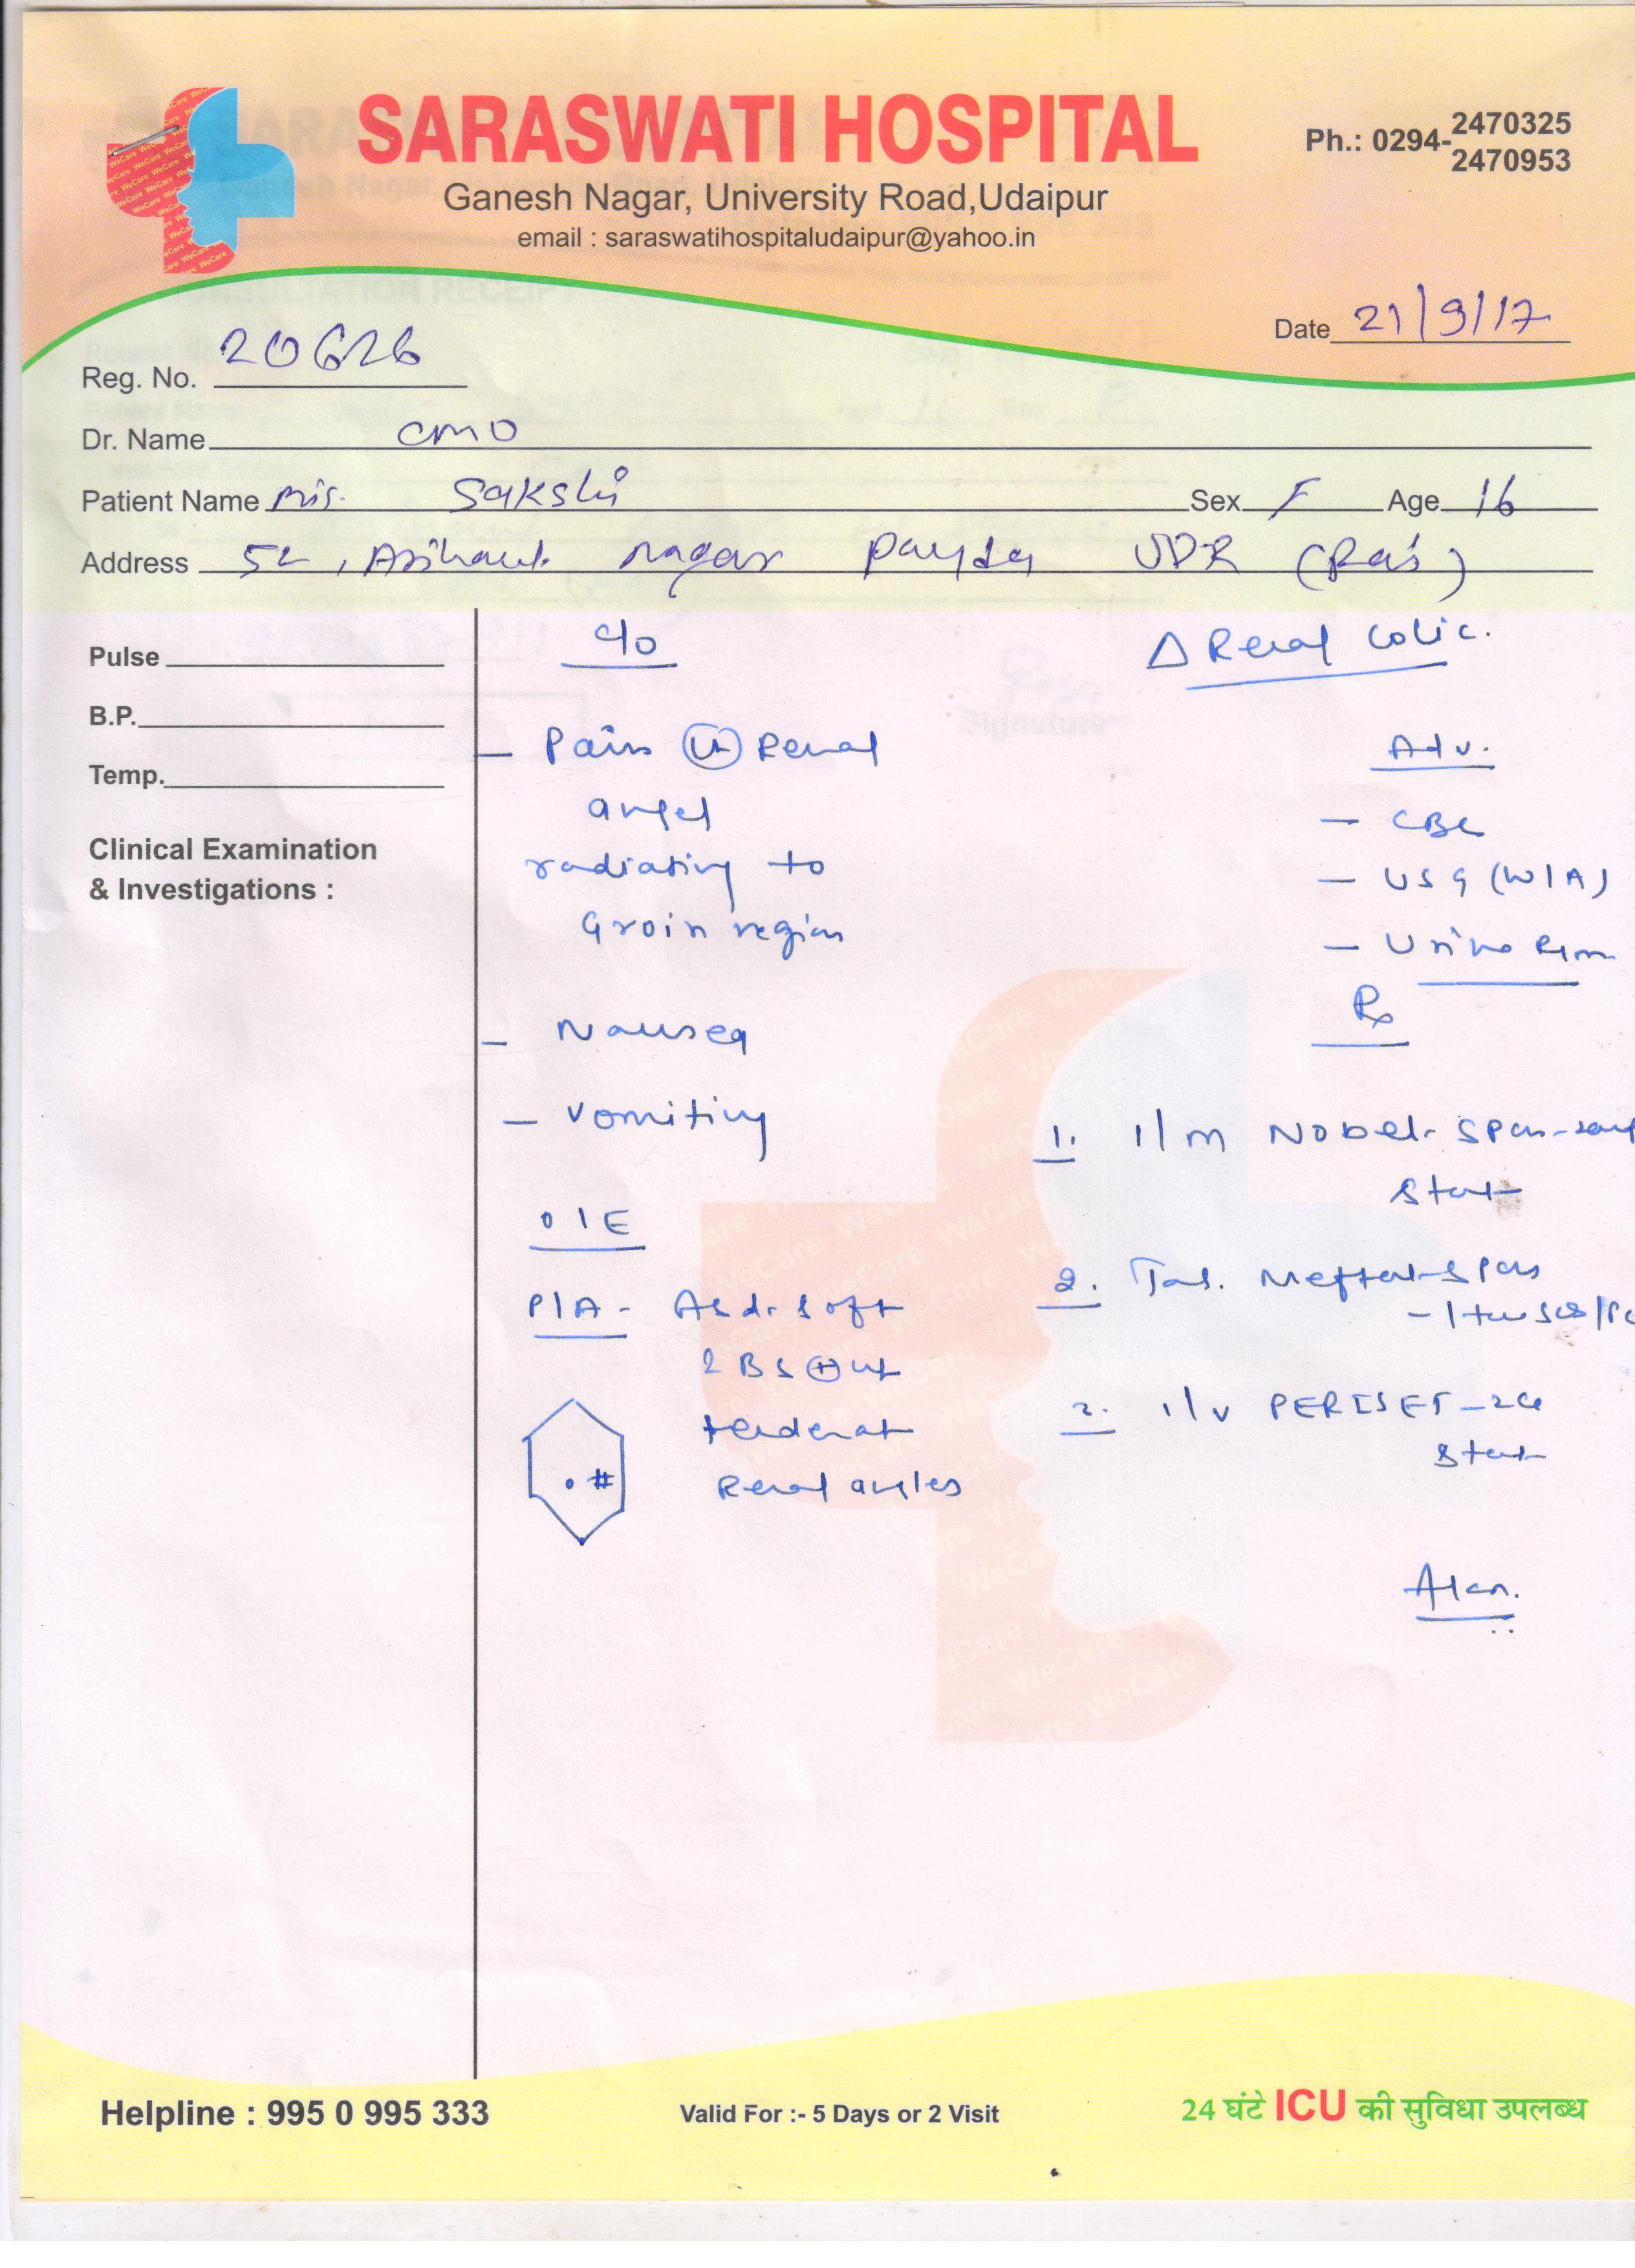 SARASWATI HOSPITAL
Ganesh Nagar, University Road,Udaipur
email : saraswatihospitaludaipur@yahoo.in
Ph.: 0294-2470325
2470953
Date 21/9/17
Reg. No. 20626
Dr. Name CMO
Patient Name Mis. Sakshi Sex F Age 16
Address 52, Arihant nagar payda UDR (Raj)
Pulse
B.P.
Temp.
Clinical Examination
& Investigations :
c/o
- Pain Renal
angel
radiating to
Groin region
- Nausea
- vomiting
O/E
P/A - Abd. Soft
BS ⊕
tender at
Renal angles
#
Δ Renal colic.
Adv.
- CBC
- USG (W/A)
- Urine R/m
Rx
1. I/m Nobel-Spas
Stat
2. Tab. Meftal-Spas
- 1
I/v PERISET
Stat
Helpline : 995 0 995 333
Valid For :- 5 Days or 2 Visit
24 घंटे ICU की सुविधा उपलब्ध